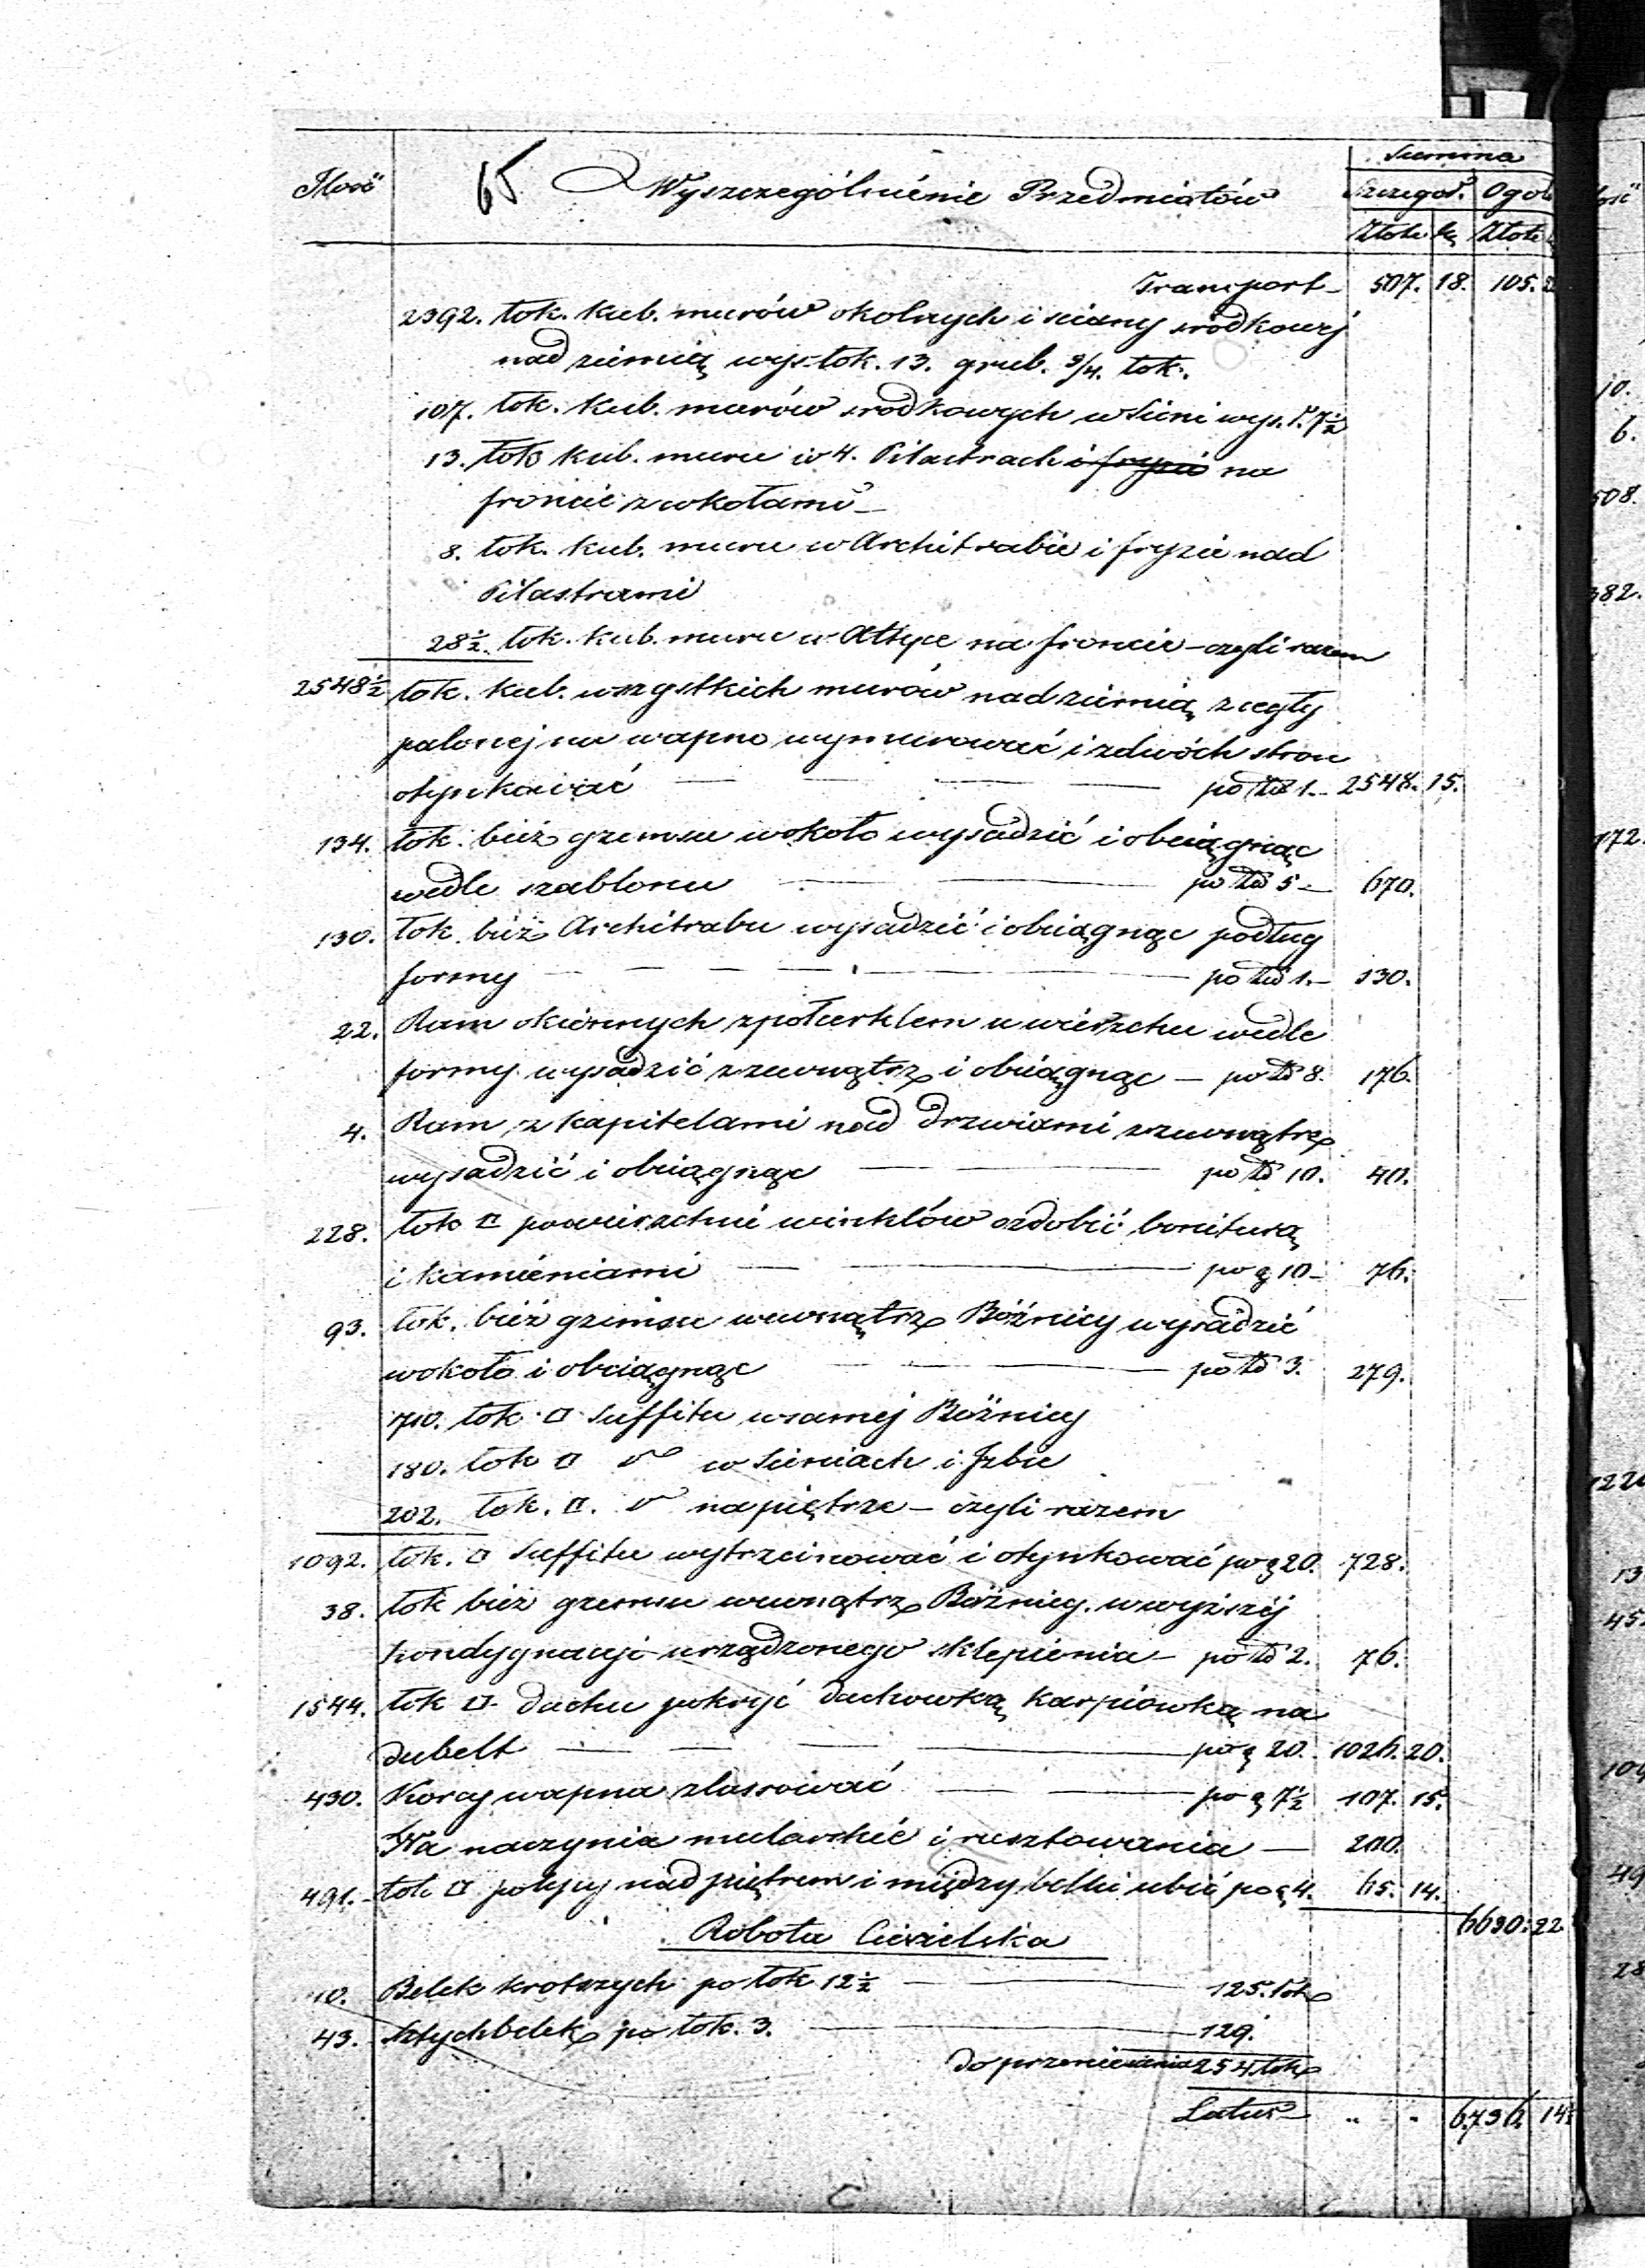 Summa
Ilość 65 Wyszczególnienie Przedmiotów Szczegół. Ogół
Złote gr Złote
Transport 507. 18. 105.
2392. łok. kub. murów okolnych i sciany srodkowéj
nad ziemią wys. łok. 13. grub. 3/4. łok.
107. łok. kub. murów srodkowych w Sieni wys. ł. 7½
13. łok kub. muru w 4. Pilastrach i fryzie na
froncie z wkołami
8. łok. kub. muru w Architrabie i fryzie nad
Pilastrami
28½. łok. kub. muru w Attyce na froncie – czyli razem
2548½ łok. kub. wszystkich murów nad ziemią z cegły
palonej na wapno wymurować i z dwóch stron
otynkować po zł 1. 2548. 15.
134. łok. bież gzemsu wokoło wysadzić i obciągnąc
wedle szablonu po zł 5 – 670.
130. łok. bież Architrabu wysadzić i obciągnąc podług
formy po zł 1. – 130.
22. Ram okiennych z półcerklem u wierzchu wedle
formy wysadzić zzewnątrz i obciągnąc – po zł 8. 176.
4. Ram z kapitelami nad drzwiami zzewnątrz
wysadzić i obciągnąc po zł 10. 40.
228. łok □ powierzchni winklów ozdobić boniturą
i kamieniami po g 10 – 76.
93. łok. bież gzimsu wewnątrz Bóżnicy wysadzić
wokoło i obciągnąc po zł 3. 279.
710. łok □ Suffitu w samej Bóżnicy
180. łok □ do w Sieniach i Izbie
202. łok. □. do na piętrze – czyli razem
1092. łok. □ Suffitu wytrzcinować i otynkować po g 20. 728.
38. łok bież gzemsu wewnątrz Bóżnicy w wyższéj
kondygnacyi urządzonego sklepienia – po zł 2. 76.
1544. łok □. dachu pokryć dachowką karpiówką na
dubelt po g 20. 1026. 20.
430. Korcy wapna zlassować po g 7½ 107. 15.
Na naczynia mularskie i rusztowania – 200.
491. łok □ polepy nad piętrem i między belki ubić po g 4. 65. 14.
6630. 22
Robota Ciesielska
10. Belek krotszych po łok 12½ 125. łok
43. Sztychbelek po łok. 3. 129.
do przeniesienia 254 łok
Latus „ „ 6736. 14